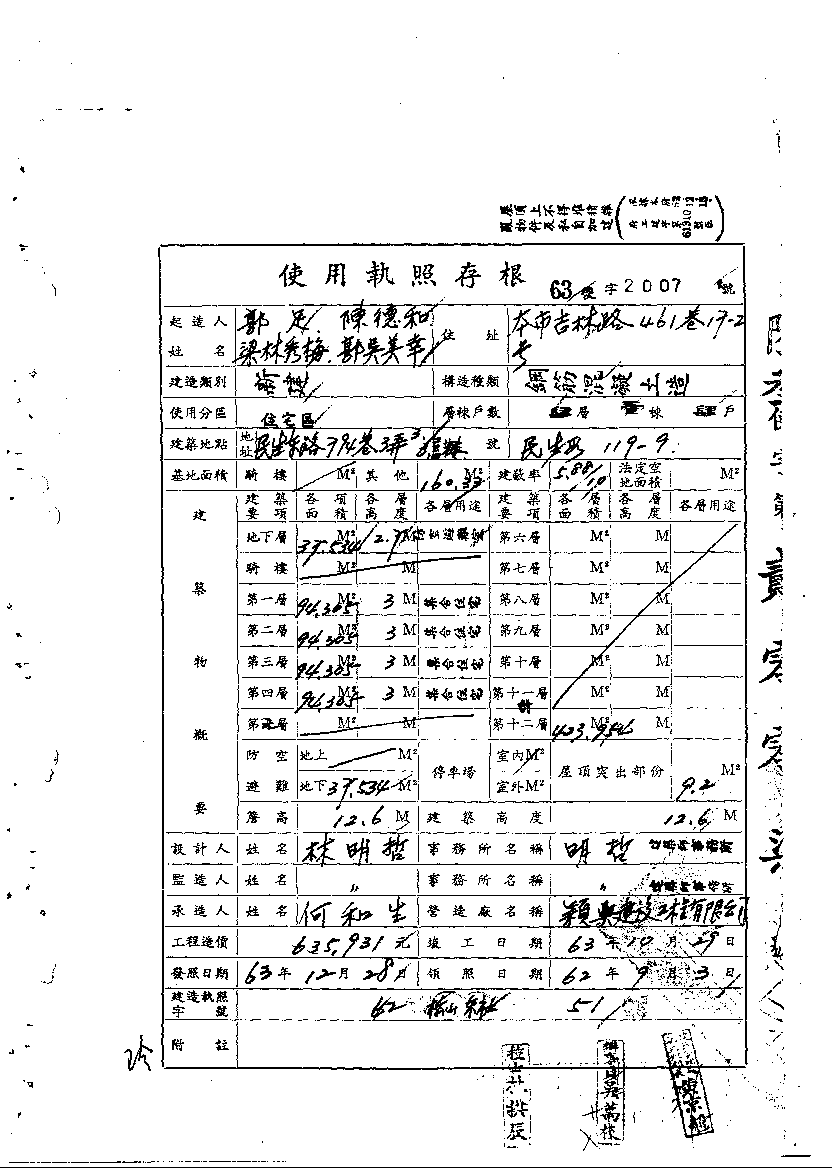 屋頂上不得堆積雜
亂物件及私自加建
使用執照存根 63 使字2007號
起造人姓名 郭足 陳德和 住址 本市吉林路461巷17-2
梁林秀梅 郭吳美幸 號
建造類別 新建 構造種類 鋼筋混凝土造
使用分區 住宅區 層棟戶數 層 棟 戶
建築地點 地址 民生東路794巷3弄 號 民生段 119-9
基地面積 騎樓 M² 其他 160.33 M² 建蔽率 5.88/10 法定空地面積 M²
建築物概要 建築要項 各項面積 各層高度 各層用途 建築要項 各層面積 各層高度 各層用途
地下層 37.534 M² 2.7 M 第六層 M² M
騎樓 M² M 第七層 M² M
第一層 94.305 M² 3 M 集合住宅 第八層 M² M
第二層 94.305 M² 3 M 集合住宅 第九層 M² M
第三層 94.305 M² 3 M 集合住宅 第十層 M² M
第四層 94.305 M² 3 M 集合住宅 第十一層 M² M
第五層 M² M 第十二層 計 423.954 M² M
防空避難 地上 M² 停車場 室內M² 屋頂突出部份 9.2 M²
地下 37.534 M² 室外M²
簷高 12.6 M 建築高度 12.6 M
設計人 姓名 林明哲 事務所名稱 明哲 建築師事務所
監造人 姓名 〃 事務所名稱 〃 建築師事務所
承造人 姓名 何和生 營造廠名稱 有限公司
工程造價 635,931元 竣工日期 63年10月29日
發照日期 63年12月28日 領照日期 62年9月3日
建造執照字號 62 松山 51
附註
玲